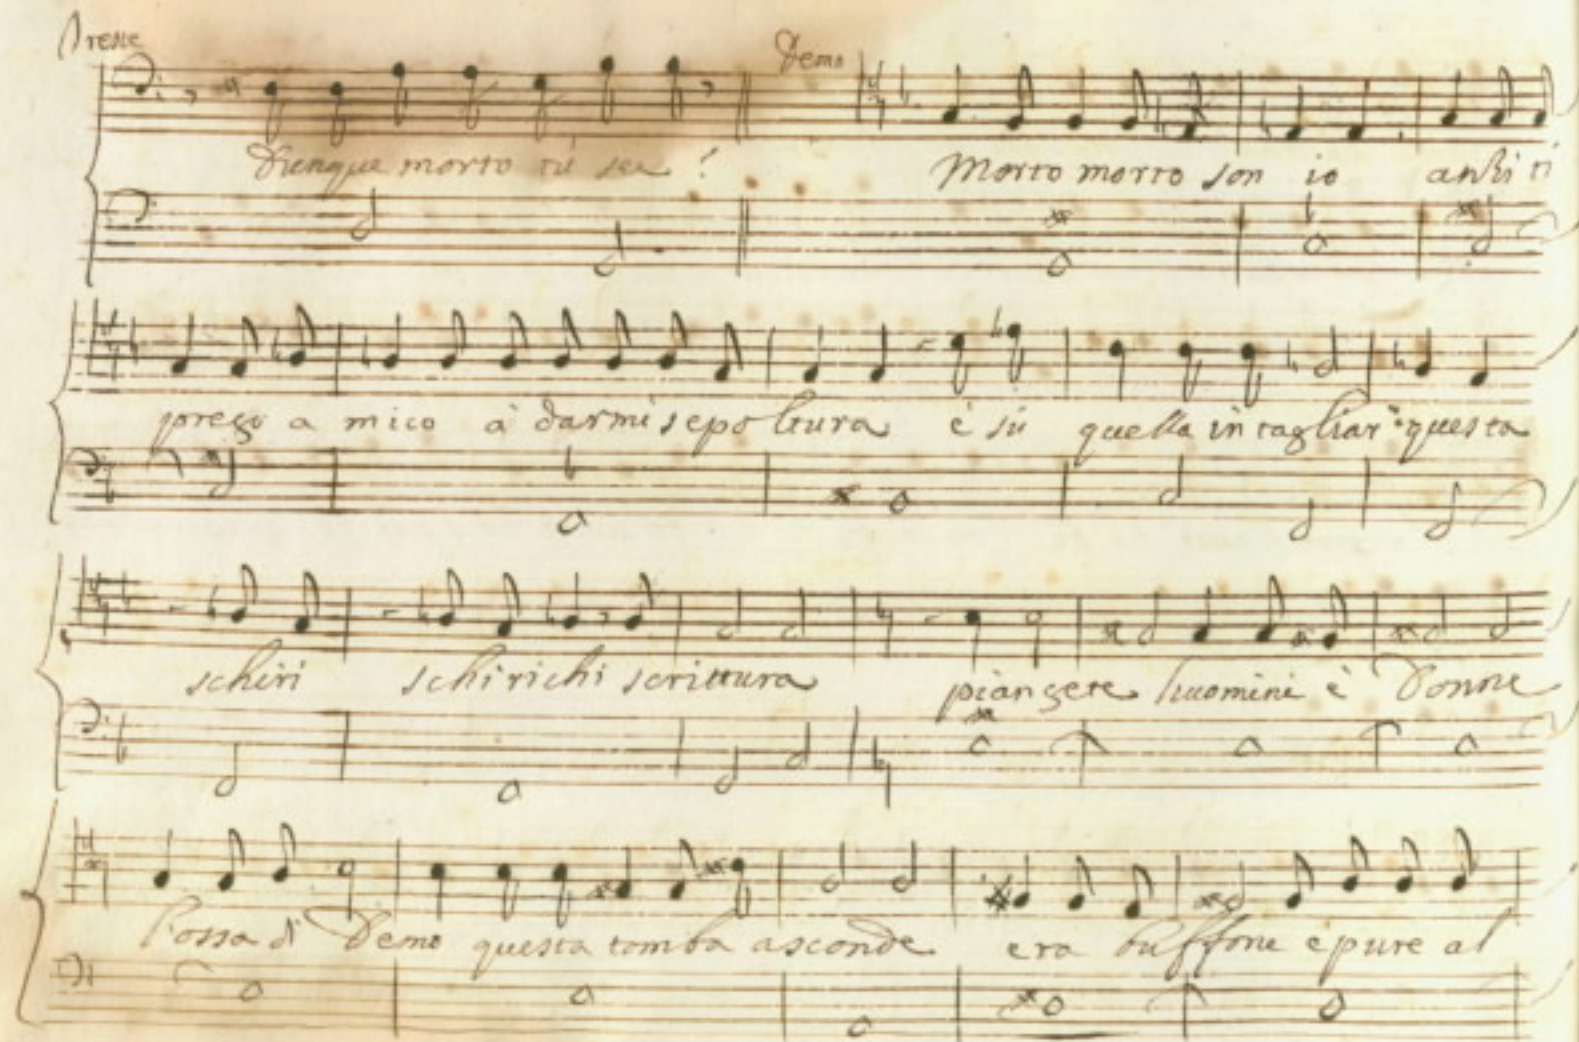 Oreste Demo
Dunque morto tù sei ? Morto morto son io anhi ti
prego a mico à darmi sepo ltura è sù quella in tagliar questa
schiri schirichi scrittura piangete huomini è Donne
l'ossa di Demo questa tomba asconde era buffone e pure al